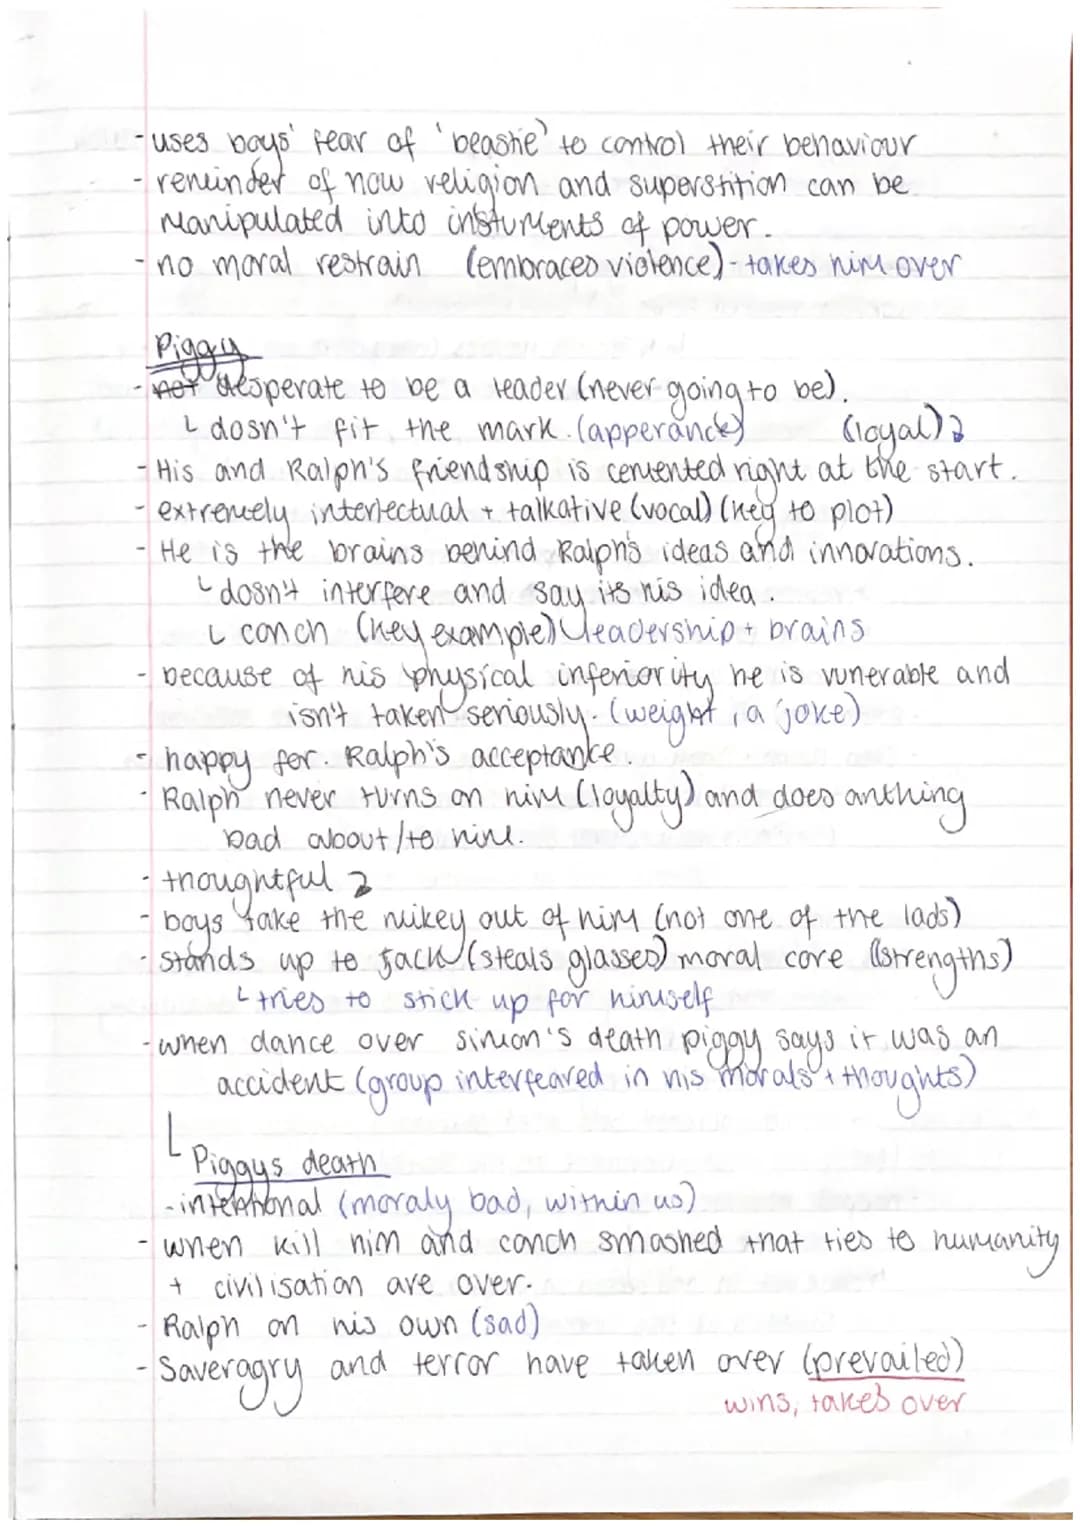 - uses boys' fear of 'beastie' to control their behaviour
- reminder of how religion and superstition can be
manipulated into insturments of power.
- no moral restrain (embraces violence) - takes him over
Piggy
- not desperate to be a leader (never going to be).
↳ dosn't fit the mark. (apperance) (loyal)
- His and Ralph's friendship is cemented right at the start.
- extremely interlectual + talkative (vocal) (key to plot)
- He is the brains behind Ralph's ideas and innovations.
↳ dosn't interfere and say its his idea.
↳ conch (key example) leadership + brains
- because of his physical inferiority he is vunerable and
isn't taken seriously. (weight, a joke)
- happy for Ralph's acceptance.
- Ralph never turns on him (loyalty) and does anthing
bad about/to him.
- thoughtful
- boys take the mikey out of him (not one of the lads)
- stands up to Jack (steals glasses) moral core (strengths)
↳ tries to stick up for himself
- when dance over simon's death piggy says it was an
accident (group interfeared in his morals + thoughts)
↳ Piggys death
- intentional (moraly bad, within us)
- when kill him and conch smashed that ties to humanity
+ civilisation are over.
- Ralph on his own (sad)
- Saveragry and terror have taken over (prevailed)
wins, takes over